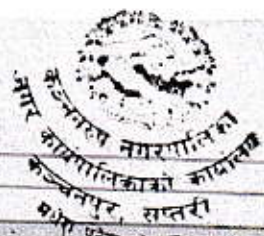 कञ्चनरुप नगरपालिका
नगर कार्यपालिकाको कार्यालय
कञ्चनपुर, सप्तरी